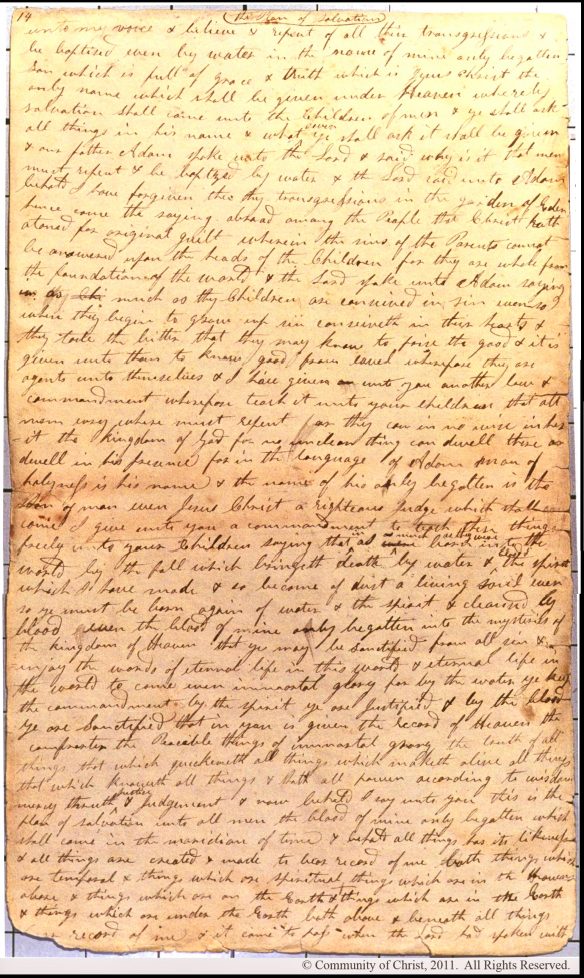 14 (the Plan of Salvation)
unto my voice & believe & repent of all thin transgressions &
be baptised even by water in the name of mine only begotten
Son which is full of grace & truth which is Jesus Christ the
only name which shall be given under Heaven whereby
salvation shall come unto the Children of men & ye shall ask
all things in his name & what soever ye shall ask it shall be given
& our father Adam spoke unto the Lord & said why is it that men
must repent & be baptized by water & the Lord said unto Adam
behold I have forgiven thee thy transgressions in the garden of Eden
hence came the saying abroad among the People that Christ hath
atoned for original guilt wherein the sins of the Parents cannot
be answered upon the heads of the Children for they are whole from
the foundation of the world & the Lord spake unto Adam saying
in as much as thy Children are conceived in sin even so
when they begin to grow up sin conceiveth in their hearts &
they taste the bitter that they may know to prise the good & it is
given unto them to know good from evil wherefore they are
agents unto themselves & I have given unto you another law &
commandment wherefore teach it unto your children that all
men every where must repent or they can in no wise inher
it the kingdom of God for no unclean thing can dwell there or
dwell in his presence for in the language of Adam man of
holyness is his name & the name of his only begotten is the
Son of man even Jesus Christ a righteous Judge which shall
come I give unto you a commandment to teach these things
freely unto your Children saying that in as much as they were born into the
world by the fall which bringeth death by water & blood & the spirit
which I have made & so became of dust a living soul even
so ye must be born again of water & the spirit & cleansed by
blood even the blood of mine only begotten into the mysteries of
the kingdom of Heaven that ye may be sanctified from all sin &
enjoy the words of eternal life in this world & eternal life in
the world to come even immortal glory for by the water ye keep
the commandment by the spirit ye are Justified & by the blood
ye are Sanctified that in you is given the record of Heaven the
comforter the Peacible things of immortal glory the truth of all
things that which quickeneth all things which maketh alive all things
that which knoweth all things & hath all power according to wisdom
mercy truth Justice & Judgement & now behold I say unto you this is the
plan of salvation unto all men the blood of mine only begotten which
shall come in the meridian of time & behold all things has its likeness
& all things are created & made to bear record of me both things which
are temporal & things which are spiritual things which are in the Heavens
above & things which are on the Earth & things which are in the Earth
& things which are under the Earth both above & beneath all things
record of me & it came to pass when the Lord had spoken with
© Community of Christ, 2011. All Rights Reserved.